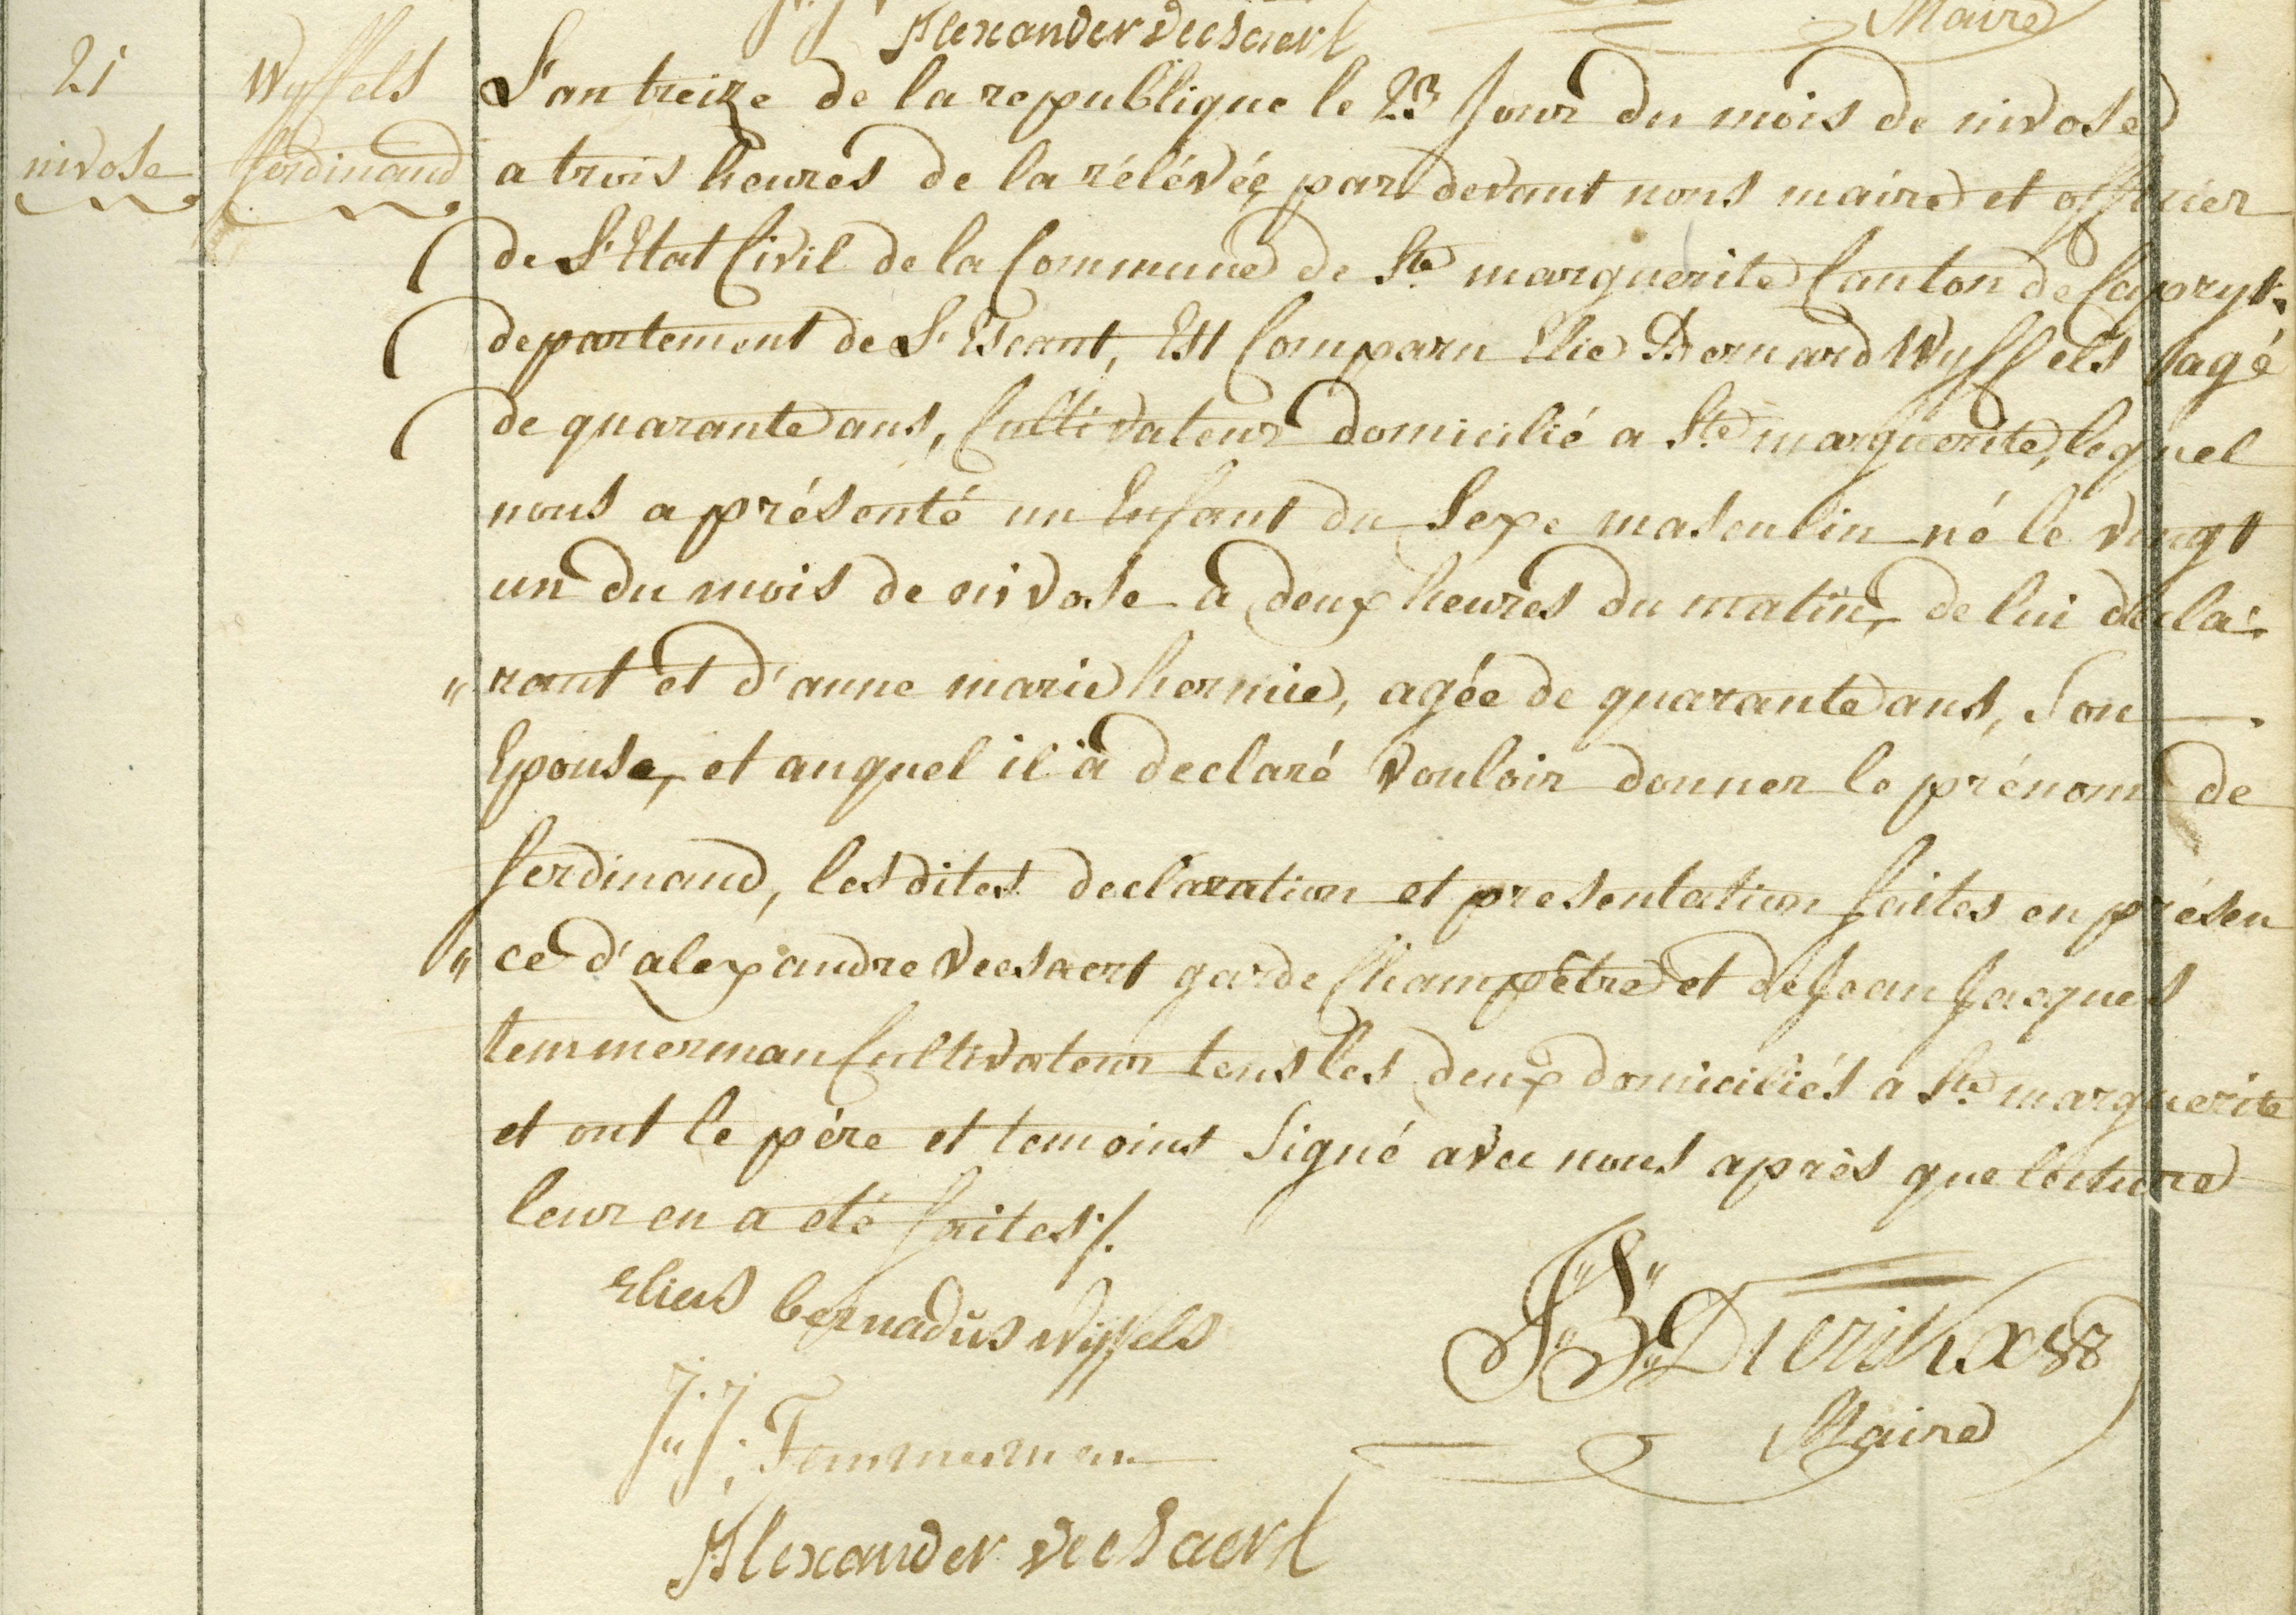 Alexander Veesaert
Maire
21
nivose
Wyffels
ferdinand
L'an treize de la republique le 23 Jour du mois de nivose
a trois heures de la rélévée, par devant nous maire et officier
de L'Etat Civil de la Commune de Ste marguerite Canton de Capryk
departement de L'Escaut, Est Comparu Elie Bernard Wyffels agé
de quarante ans, Cultivateur domicilié a Ste marguerite, lequel
nous a présenté un Enfant du Sexe masculin né le vingt
un du mois de nivose a deux heures du matin, de lui decla-
"rant et d'anne marie hermie, agée de quarante ans, Son
Epouse, et auquel il a declaré Vouloir donner le prénom de
ferdinand, les dites declaration et presentation faites en présen
"ce d'alexandre Veesaert garde Champêtre et de Jean Jacques
temmerman Cultivateur tous les deux domiciliés a Ste marguerite
et ont le père et temoins Signé avec nous après que lecture
leur en a eté faites /.
Elius bernadus Wyffels
J: B: Dierikx
Maire
J: J: Temmerman
Alexander Veesaert